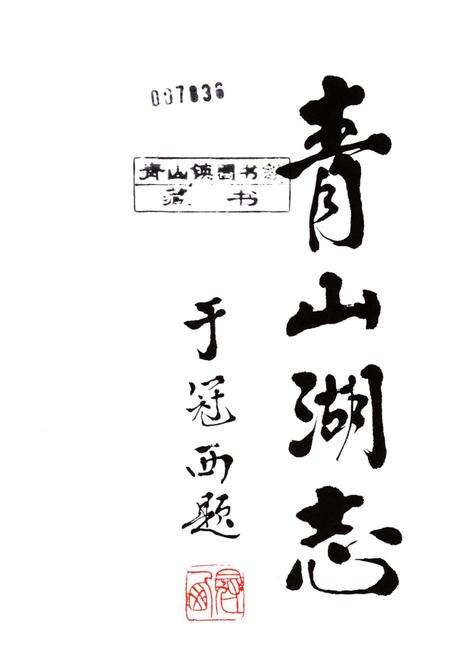 青山湖志
007836
青山镇图书馆
藏书
于冠西题
冠西